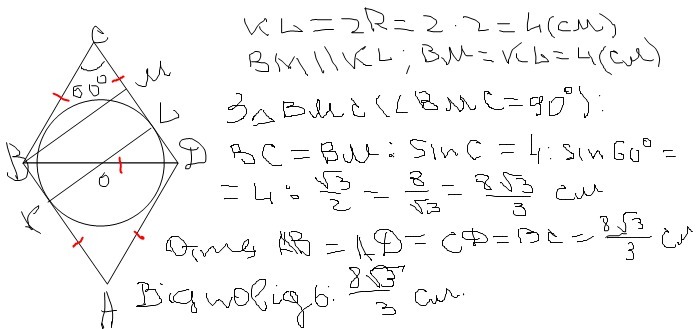 C
60°
M
L
B
D
O
K
A
KL = 2R = 2 · 2 = 4 (см)
BM || KL; BM = KL = 4 (см)
З △BMC (∠BMC = 90°):
BC = BM : sin C = 4 : sin 60° =
= 4 : √3/2 = 8/√3 = 8√3/3 см
Отже, AB = AD = CD = BC = 8√3/3 см
Відповідь: 8√3/3 см.